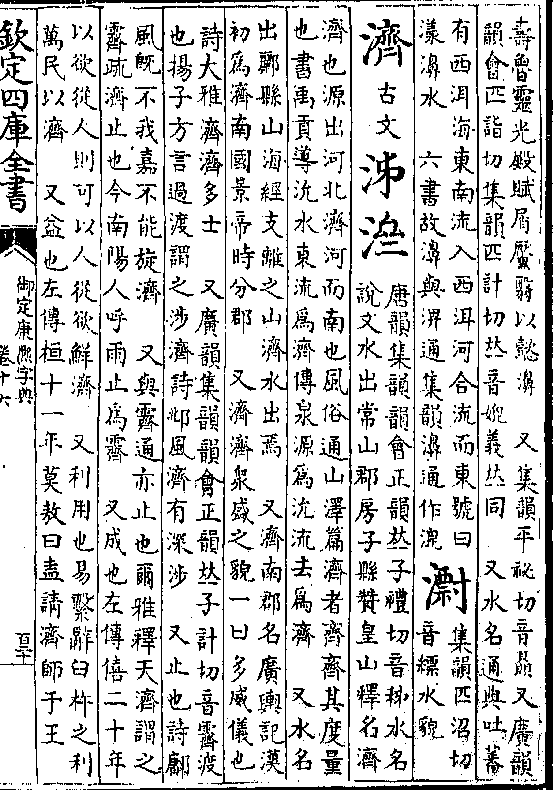 壽魯靈光殿賦屑黶翳以懿濞　又集韻平祕切音㬰又廣韻
韻會匹詣切集韻匹計切𠀤音媲義𠀤同　又水名通典吐蕃
有西洱海東南流入西洱河合流而東號曰
漾濞水　六書故濞與淠通集韻濞通作渒
濞
集韻匹沼切
音縹水貌
濟
古文
泲
𣵠
唐韻集韻韻會正韻𠀤子禮切音𥹷水名
說文水出常山郡房子縣贊皇山釋名濟
濟也源出河北濟河而南也風俗通山澤篇濟者齊齊其度量
也書禹貢導沇水東流爲濟傳泉源爲沇流去爲濟　又水名
出鄺縣山海經支離之山濟水出焉　又濟南郡名廣輿記漢
初爲濟南國景帝時分郡　又濟濟衆盛之貌一曰多威儀也
詩大雅濟濟多士　又廣韻集韻韻會正韻𠀤子計切音霽渡
也揚子方言過渡謂之涉濟詩邶風濟有深涉　又止也詩鄘
風旣不我嘉不能旋濟　又與霽通亦止也爾雅釋天濟謂之
霽疏濟止也今南陽人呼雨止爲霽　又成也左傳僖二十年
以欲從人則可以人從欲鮮濟　又利用也易繫辭臼杵之利
萬民以濟　又益也左傳桓十一年莫敖曰盍請濟師于王
欽定四庫全書
御定康熙字典
卷十六